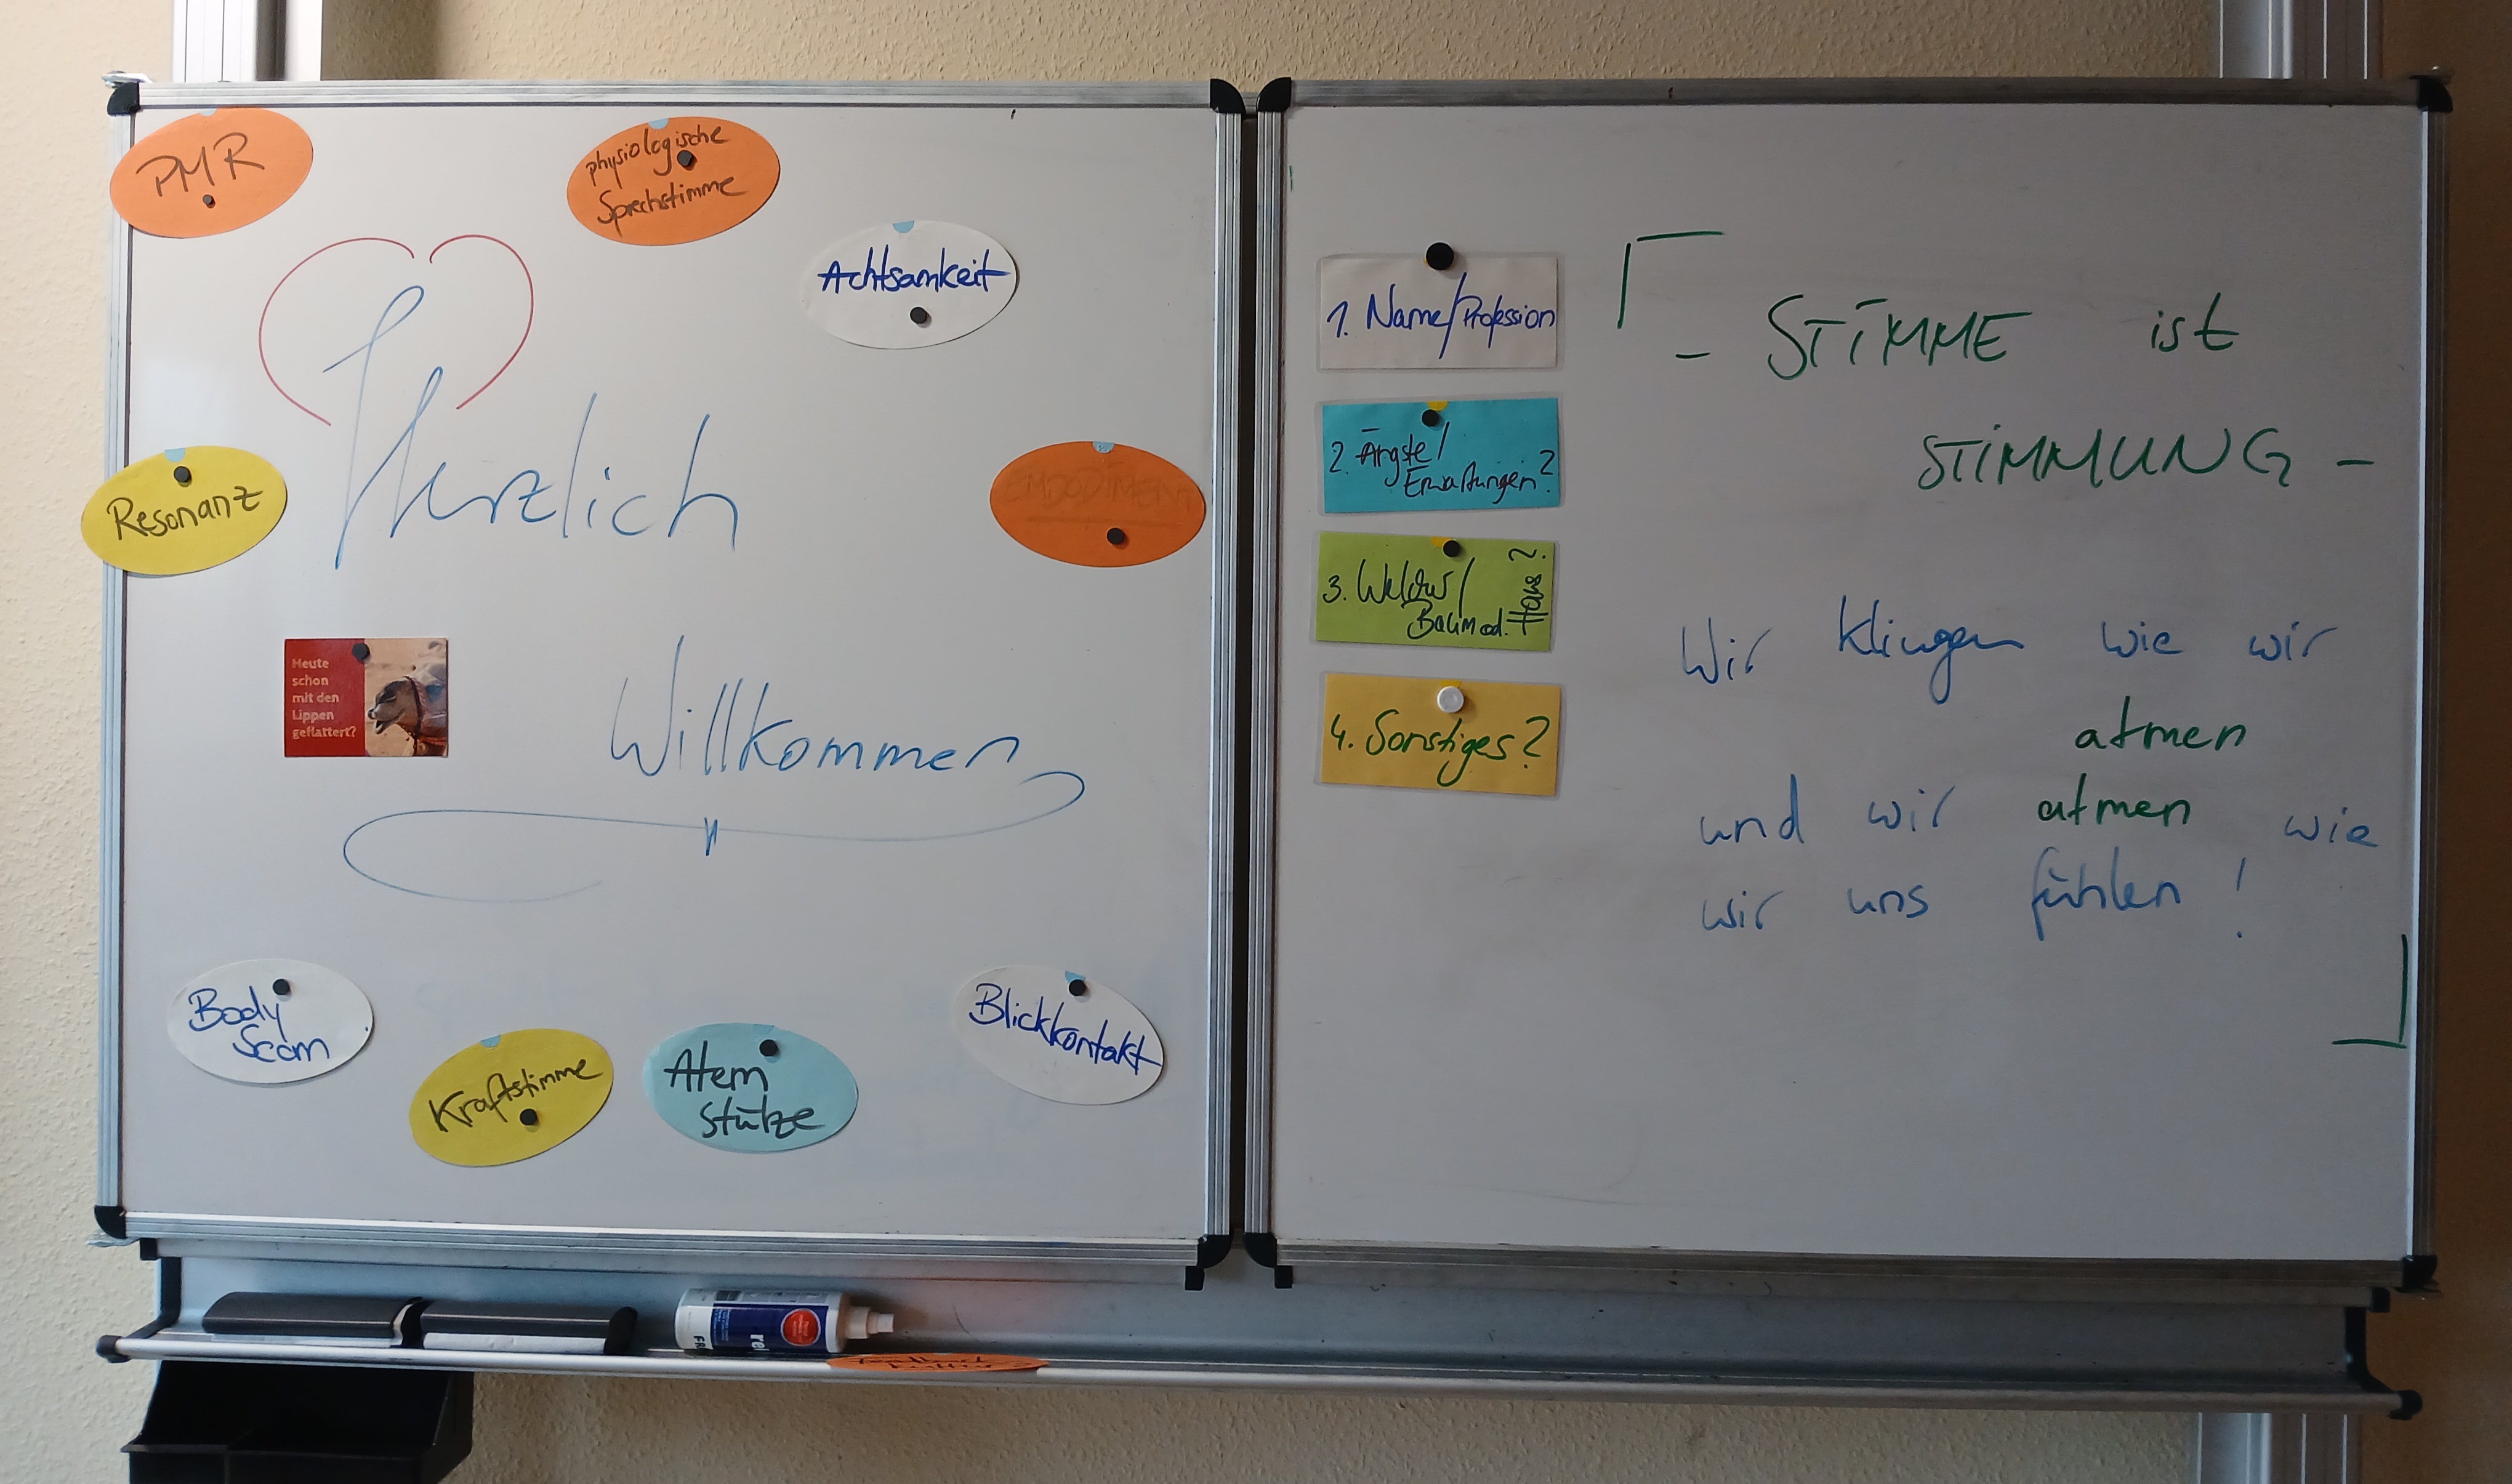 PMR
physiologische
Sprechstimme
Achtsamkeit
Herzlich
Resonanz
EMBODIMENT
Heute
schon
mit den
Lippen
geflattert?
Willkommen
Body
Scan
Kraftstimme
Atem
stütze
Blickkontakt
1. Name/Profession
2. Ängste/
Erwartungen?
3. Welches/
Baumod. Haus?
4. Sonstiges?
- STIMME ist
STIMMUNG -
Wir klingen wie wir
atmen
und wir atmen wie
wir uns fühlen!